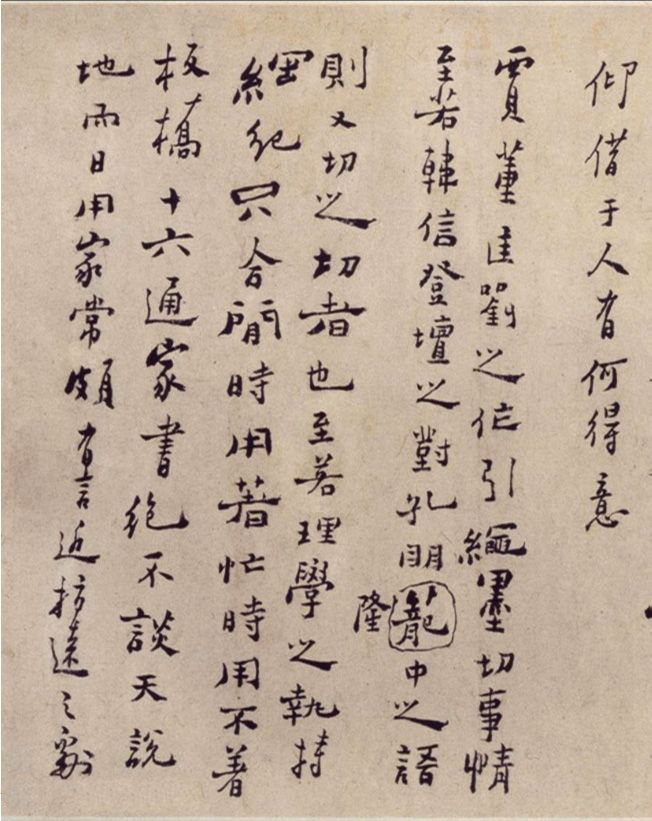 仰借于人有何得意
賈董匡劉之作引繩墨切事情
至若韓信登壇之對孔明隆中之語
則又切之切者也至若理學之執持
綱紀只合閒時用著忙時用不著
板橋十六通家書絕不談天說
地而日用家常頗有言近指遠之處